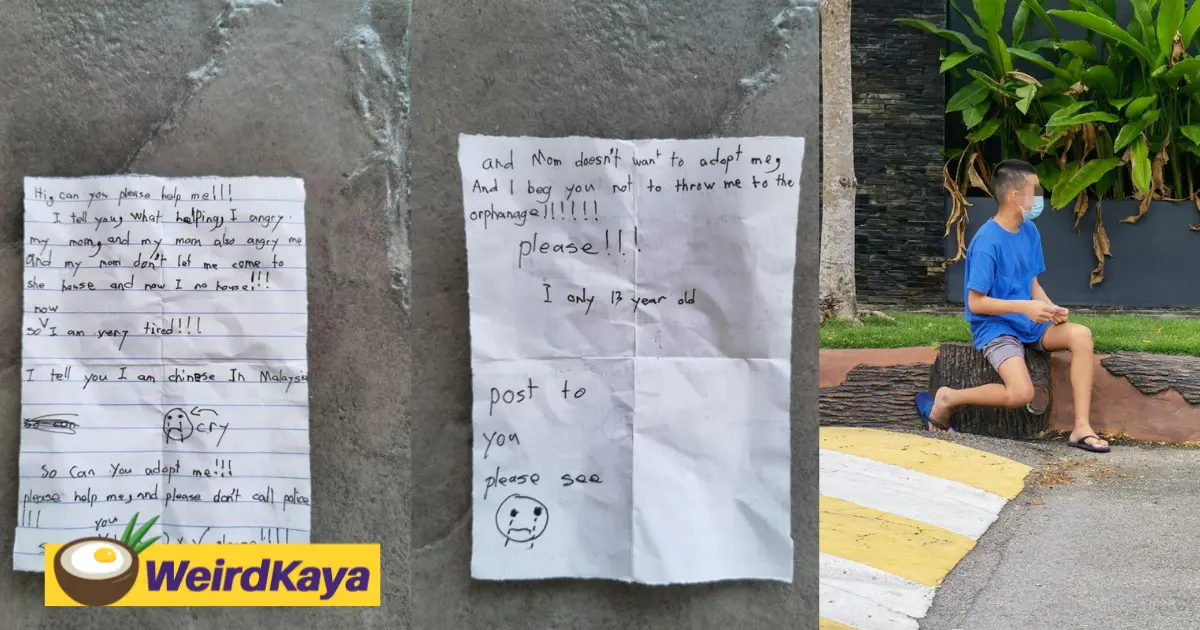 Hi, can you please help me!!!
I tell you, what helping, I angry
my mom, and my mom also angry me
and my mom don't let me come to
she house and now I no house!!!
now
so v I am very tired!!!
I tell you I am chinese In Malaysia
cry
so can you adopt me!!!
please help me, and please don't call police
!!!
you
WeirdKaya
and Mom doesn't want to adopt me,
And I beg you not to throw me to the
orphanage!!!!!!
please!!!
I only 13 year old
post to
you
please see